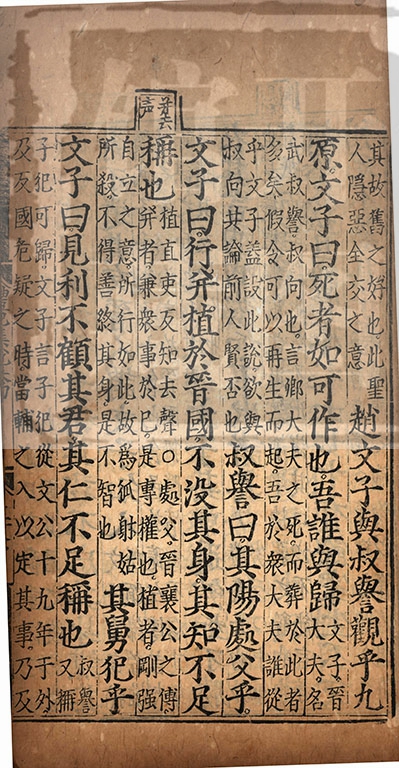 幷去
声
其故舊之好也此聖
人隱惡全交之意
趙文子與叔譽觀乎九
原文子曰死者如可作也吾誰與歸
文子晉
大夫名
武叔譽叔向也言鄉大夫之死而葬於此者
多矣假令可以再生而起吾於衆大夫誰從
乎文子蓋設此說欲與
叔向共論前人賢否也
叔譽曰其陽處父乎
文子曰行幷植於晉國不没其身其知不足
稱也
植直吏反知去聲○處父晉襄公之傅
幷者兼衆事於已是專權也植者剛强
自立之意所行如此故爲狐射姑
所殺不得善終其身是不智也
其舅犯乎
文子曰見利不顧其君其仁不足稱也
叔譽
又稱
子犯可歸文子言子犯從文公十九年于外
及反國危疑之時當輔之入以定其事乃及